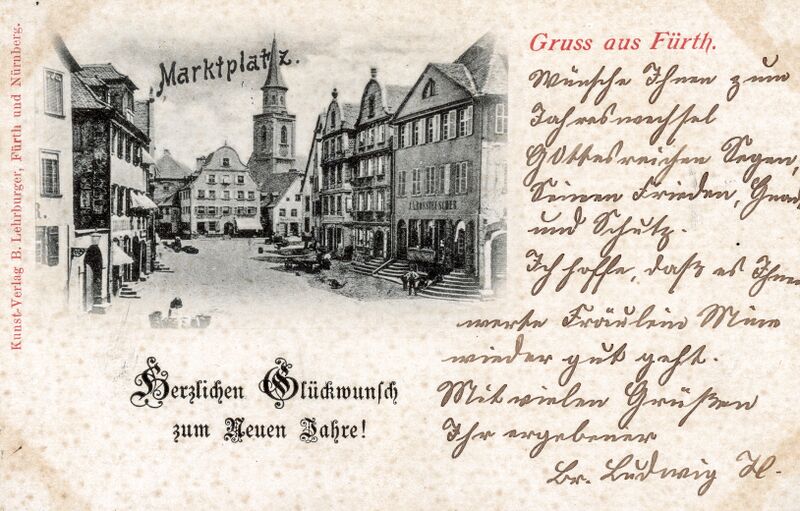 Kunst-Verlag B. Lehrburger, Fürth und Nürnberg.
Marktplatz.
Gruss aus Fürth.
Wünsche Ihnen zum
Jahreswechsel
Gottesreichen Segen,
Seinen Frieden, Gnad
und Schutz.
Ich hoffe, daß es Ihnen
werte Fräulein Mine
wieder gut geht.
Mit vielen Grüßen
Ihr ergebener
Br. Ludwig H.
Herzlichen Glückwunsch
zum Neuen Jahre!